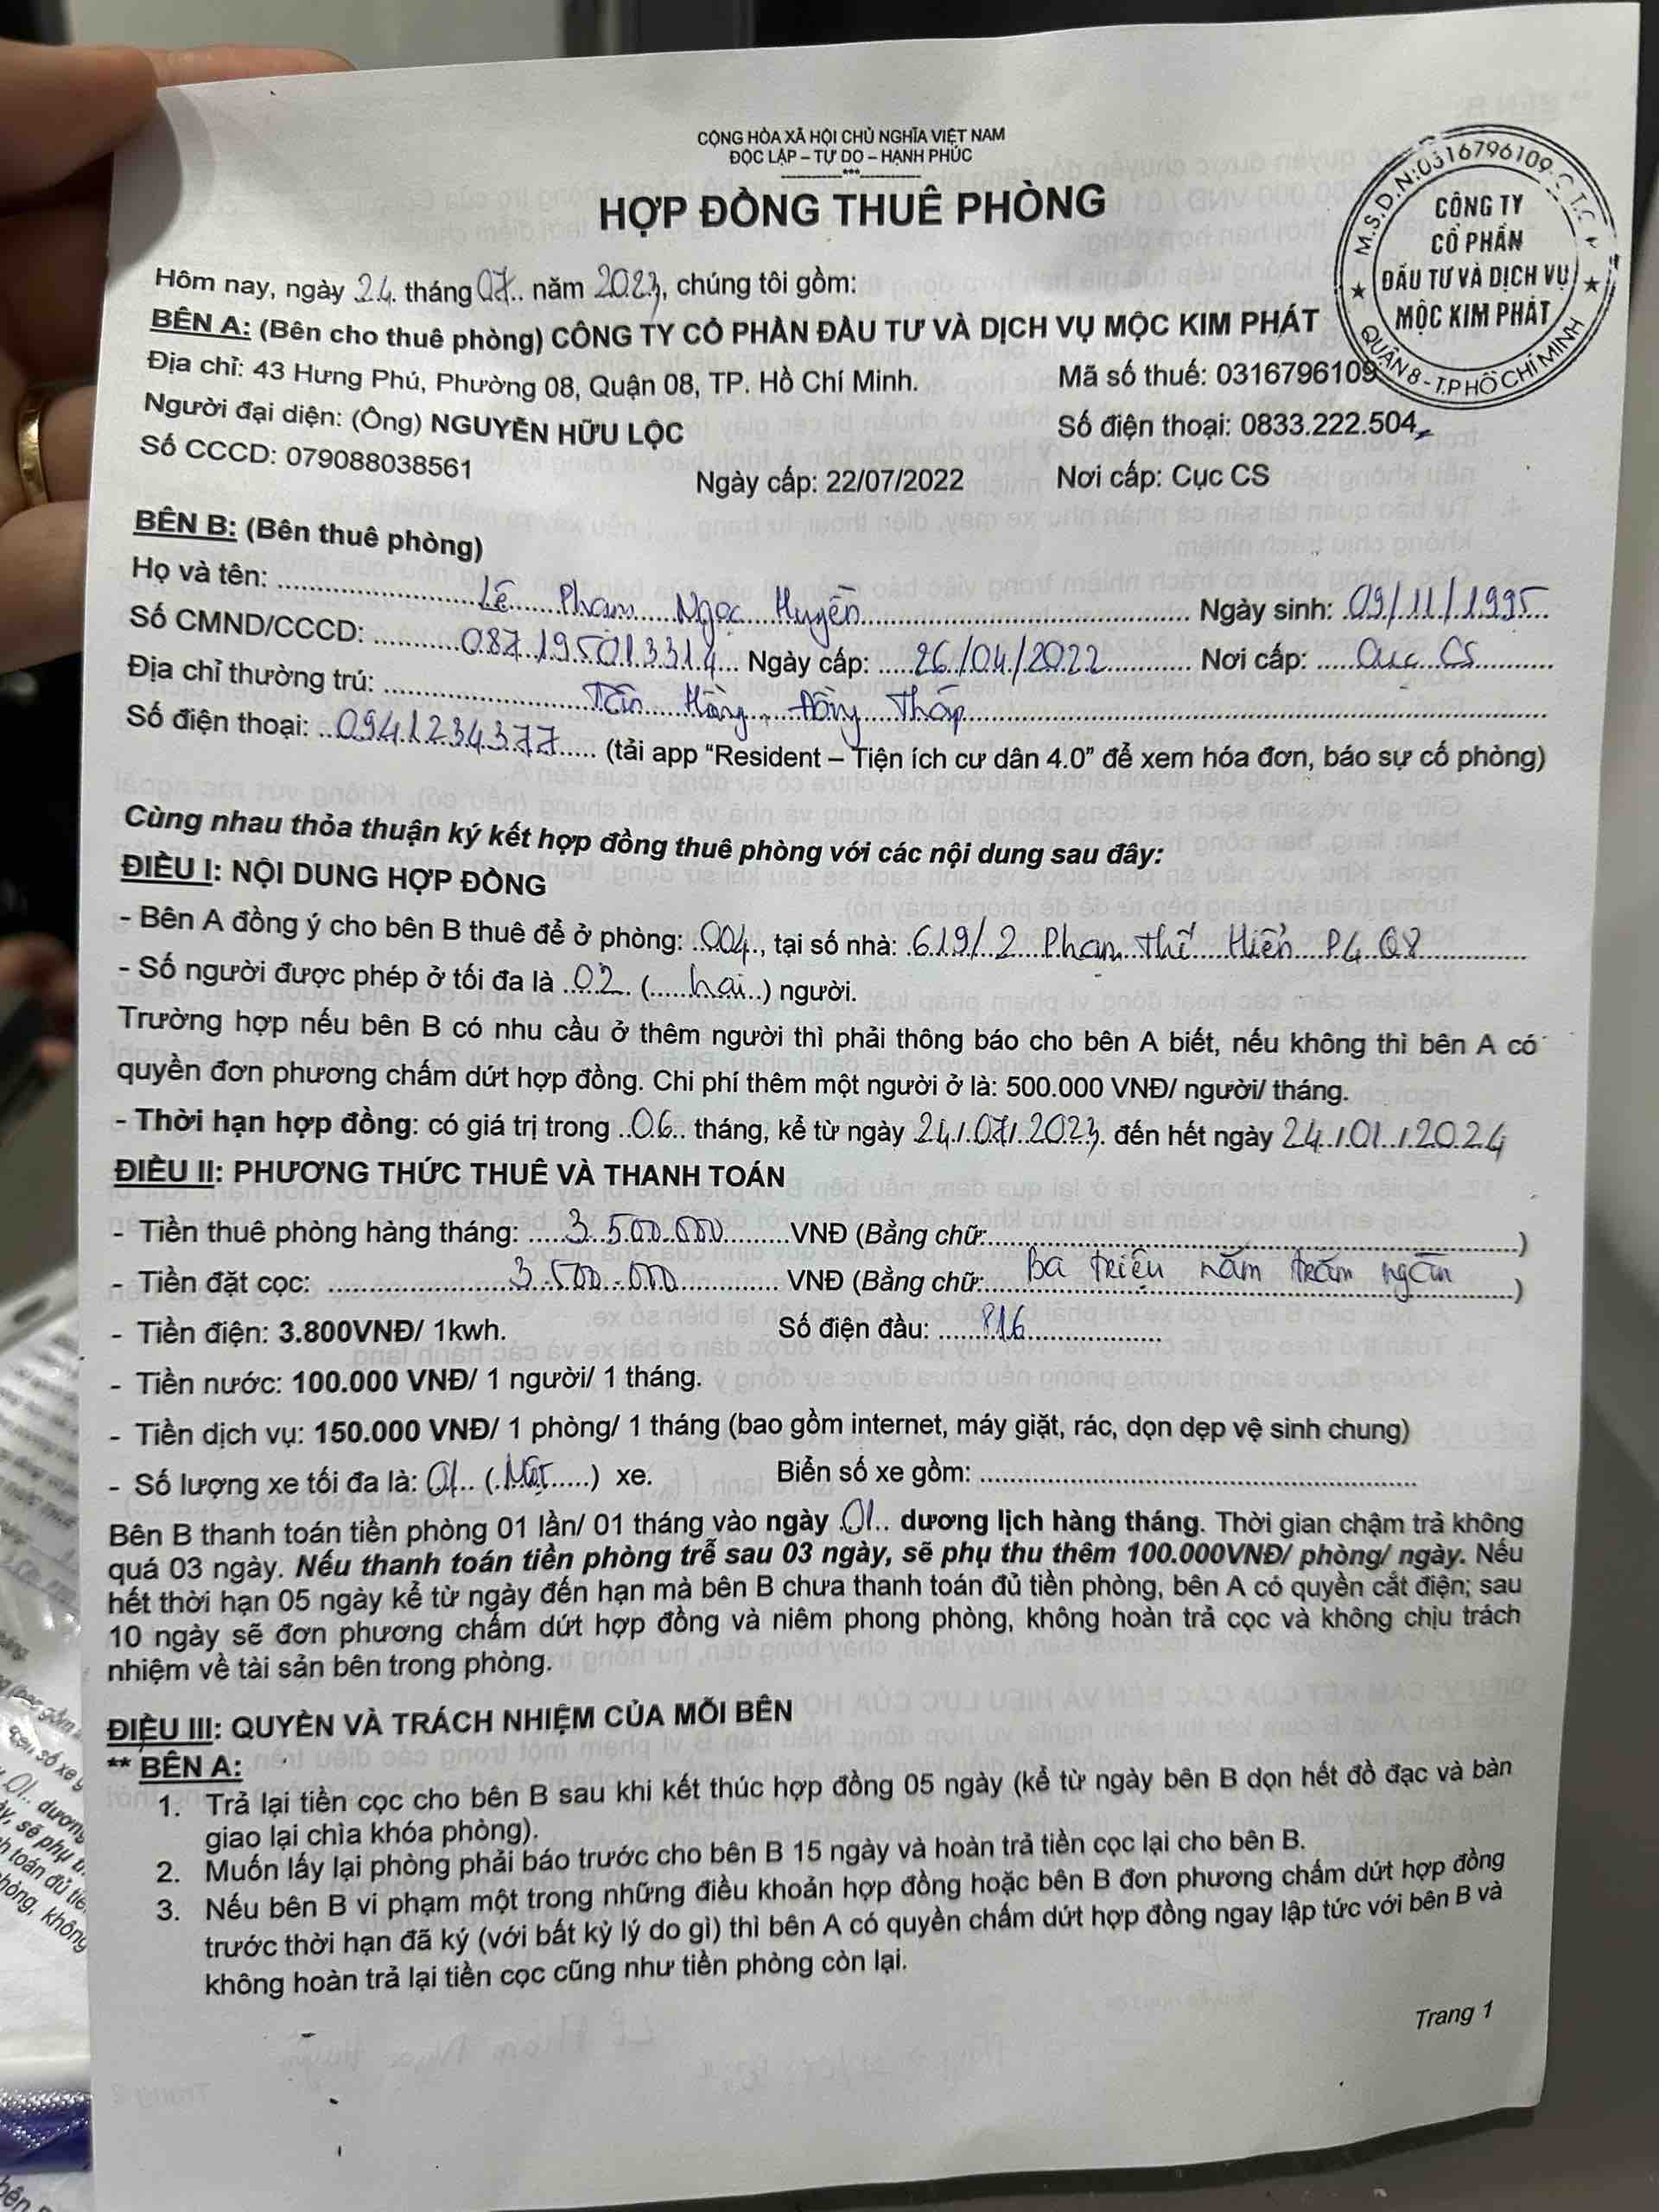 CỘNG HÒA XÃ HỘI CHỦ NGHĨA VIỆT NAM
ĐỘC LẬP – TỰ DO – HẠNH PHÚC
HỢP ĐỒNG THUÊ PHÒNG
M.S.D.N:0316796109-C.T.C
CÔNG TY
CỔ PHẦN
ĐẦU TƯ VÀ DỊCH VỤ
MỘC KIM PHÁT
QUẬN 8 - T.P HỒ CHÍ MINH
Hôm nay, ngày 24 tháng 07 năm 2023, chúng tôi gồm:
BÊN A: (Bên cho thuê phòng) CÔNG TY CỔ PHẦN ĐẦU TƯ VÀ DỊCH VỤ MỘC KIM PHÁT
Địa chỉ: 43 Hưng Phú, Phường 08, Quận 08, TP. Hồ Chí Minh. Mã số thuế: 0316796109
Người đại diện: (Ông) NGUYỄN HỮU LỘC Số điện thoại: 0833.222.504
Số CCCD: 079088038561 Ngày cấp: 22/07/2022 Nơi cấp: Cục CS
BÊN B: (Bên thuê phòng)
Họ và tên: Lê Phạm Ngọc Huyền Ngày sinh: 09/11/1995
Số CMND/CCCD: 087195013314 Ngày cấp: 26/04/2022 Nơi cấp: Cục CS
Địa chỉ thường trú: Tân Hồng, Đồng Tháp
Số điện thoại: 0941234377 (tải app “Resident – Tiện ích cư dân 4.0” để xem hóa đơn, báo sự cố phòng)
Cùng nhau thỏa thuận ký kết hợp đồng thuê phòng với các nội dung sau đây:
ĐIỀU I: NỘI DUNG HỢP ĐỒNG
- Bên A đồng ý cho bên B thuê để ở phòng: 004, tại số nhà: 619/2 Phạm Thế Hiển P4 Q8
- Số người được phép ở tối đa là 02 (hai) người.
Trường hợp nếu bên B có nhu cầu ở thêm người thì phải thông báo cho bên A biết, nếu không thì bên A có
quyền đơn phương chấm dứt hợp đồng. Chi phí thêm một người ở là: 500.000 VNĐ/ người/ tháng.
- Thời hạn hợp đồng: có giá trị trong 06 tháng, kể từ ngày 24/07/2023 đến hết ngày 24/01/2024
ĐIỀU II: PHƯƠNG THỨC THUÊ VÀ THANH TOÁN
- Tiền thuê phòng hàng tháng: 3.500.000 VNĐ (Bằng chữ: )
- Tiền đặt cọc: 3.500.000 VNĐ (Bằng chữ: Ba triệu năm trăm ngàn )
- Tiền điện: 3.800VNĐ/ 1kwh. Số điện đầu: 816
- Tiền nước: 100.000 VNĐ/ 1 người/ 1 tháng.
- Tiền dịch vụ: 150.000 VNĐ/ 1 phòng/ 1 tháng (bao gồm internet, máy giặt, rác, dọn dẹp vệ sinh chung)
- Số lượng xe tối đa là: 01 (Một) xe. Biển số xe gồm:
Bên B thanh toán tiền phòng 01 lần/ 01 tháng vào ngày 01 dương lịch hàng tháng. Thời gian chậm trả không
quá 03 ngày. Nếu thanh toán tiền phòng trễ sau 03 ngày, sẽ phụ thu thêm 100.000VNĐ/ phòng/ ngày. Nếu
hết thời hạn 05 ngày kể từ ngày đến hạn mà bên B chưa thanh toán đủ tiền phòng, bên A có quyền cắt điện; sau
10 ngày sẽ đơn phương chấm dứt hợp đồng và niêm phong phòng, không hoàn trả cọc và không chịu trách
nhiệm về tài sản bên trong phòng.
ĐIỀU III: QUYỀN VÀ TRÁCH NHIỆM CỦA MỖI BÊN
** BÊN A:
1. Trả lại tiền cọc cho bên B sau khi kết thúc hợp đồng 05 ngày (kể từ ngày bên B dọn hết đồ đạc và bàn
giao lại chìa khóa phòng).
2. Muốn lấy lại phòng phải báo trước cho bên B 15 ngày và hoàn trả tiền cọc lại cho bên B.
3. Nếu bên B vi phạm một trong những điều khoản hợp đồng hoặc bên B đơn phương chấm dứt hợp đồng
trước thời hạn đã ký (với bất kỳ lý do gì) thì bên A có quyền chấm dứt hợp đồng ngay lập tức với bên B và
không hoàn trả lại tiền cọc cũng như tiền phòng còn lại.
Trang 1